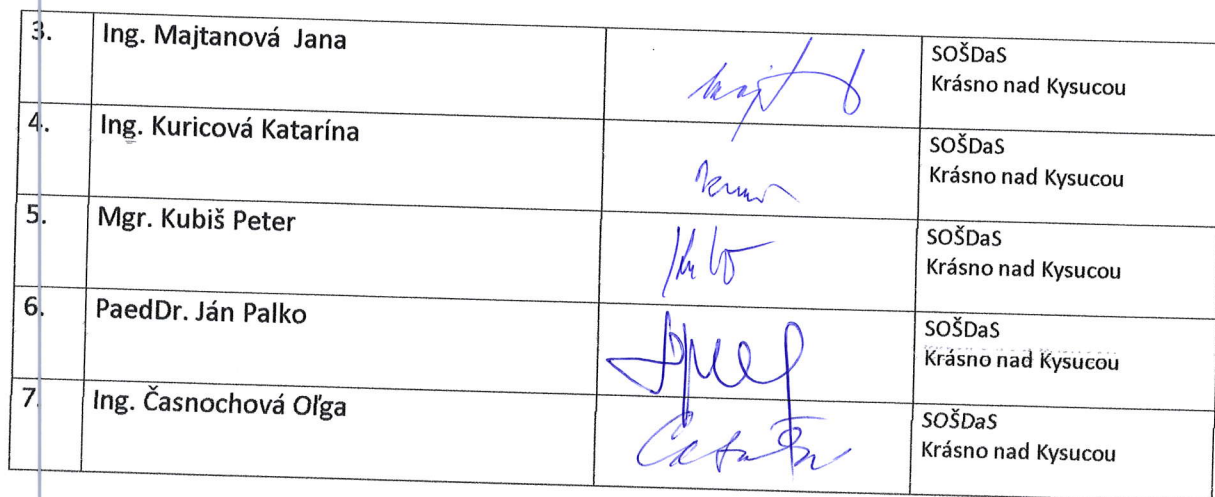 3. Ing. Majtanová Jana SOŠDaS
Krásno nad Kysucou
4. Ing. Kuricová Katarína SOŠDaS
Krásno nad Kysucou
5. Mgr. Kubiš Peter SOŠDaS
Krásno nad Kysucou
6. PaedDr. Ján Palko SOŠDaS
Krásno nad Kysucou
7. Ing. Časnochová Oľga SOŠDaS
Krásno nad Kysucou